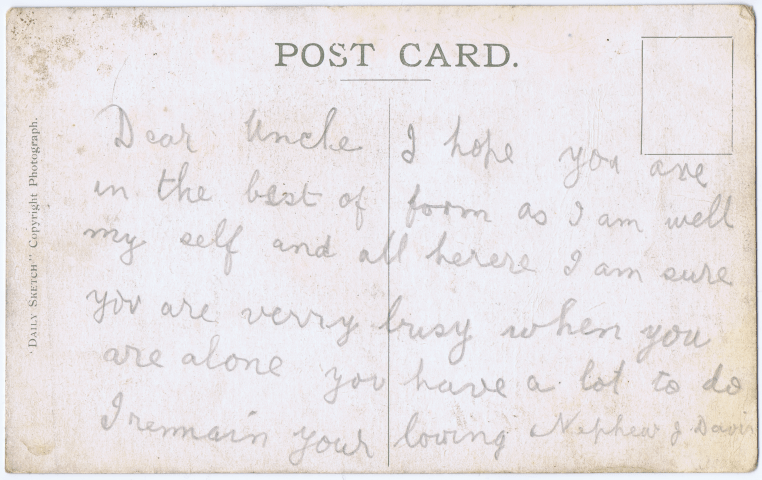 POST CARD.
Dear Uncle I hope you are
in the best of form as I am well
my self and all herere I am sure
you are verry busy when you
are alone you have a lot to do
I remain your loving Nephew J. Davis
"DAILY SKETCH" Copyright Photograph.